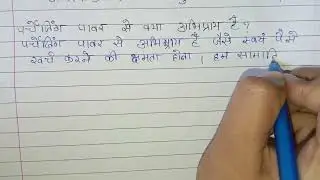 पर्चेजिंग पावर से क्या अभिप्राय है ?
पर्चेजिंग पावर से अभिप्राय है जैसे स्वयं पैसे
खर्च करने की क्षमता होना । हम सामाजि